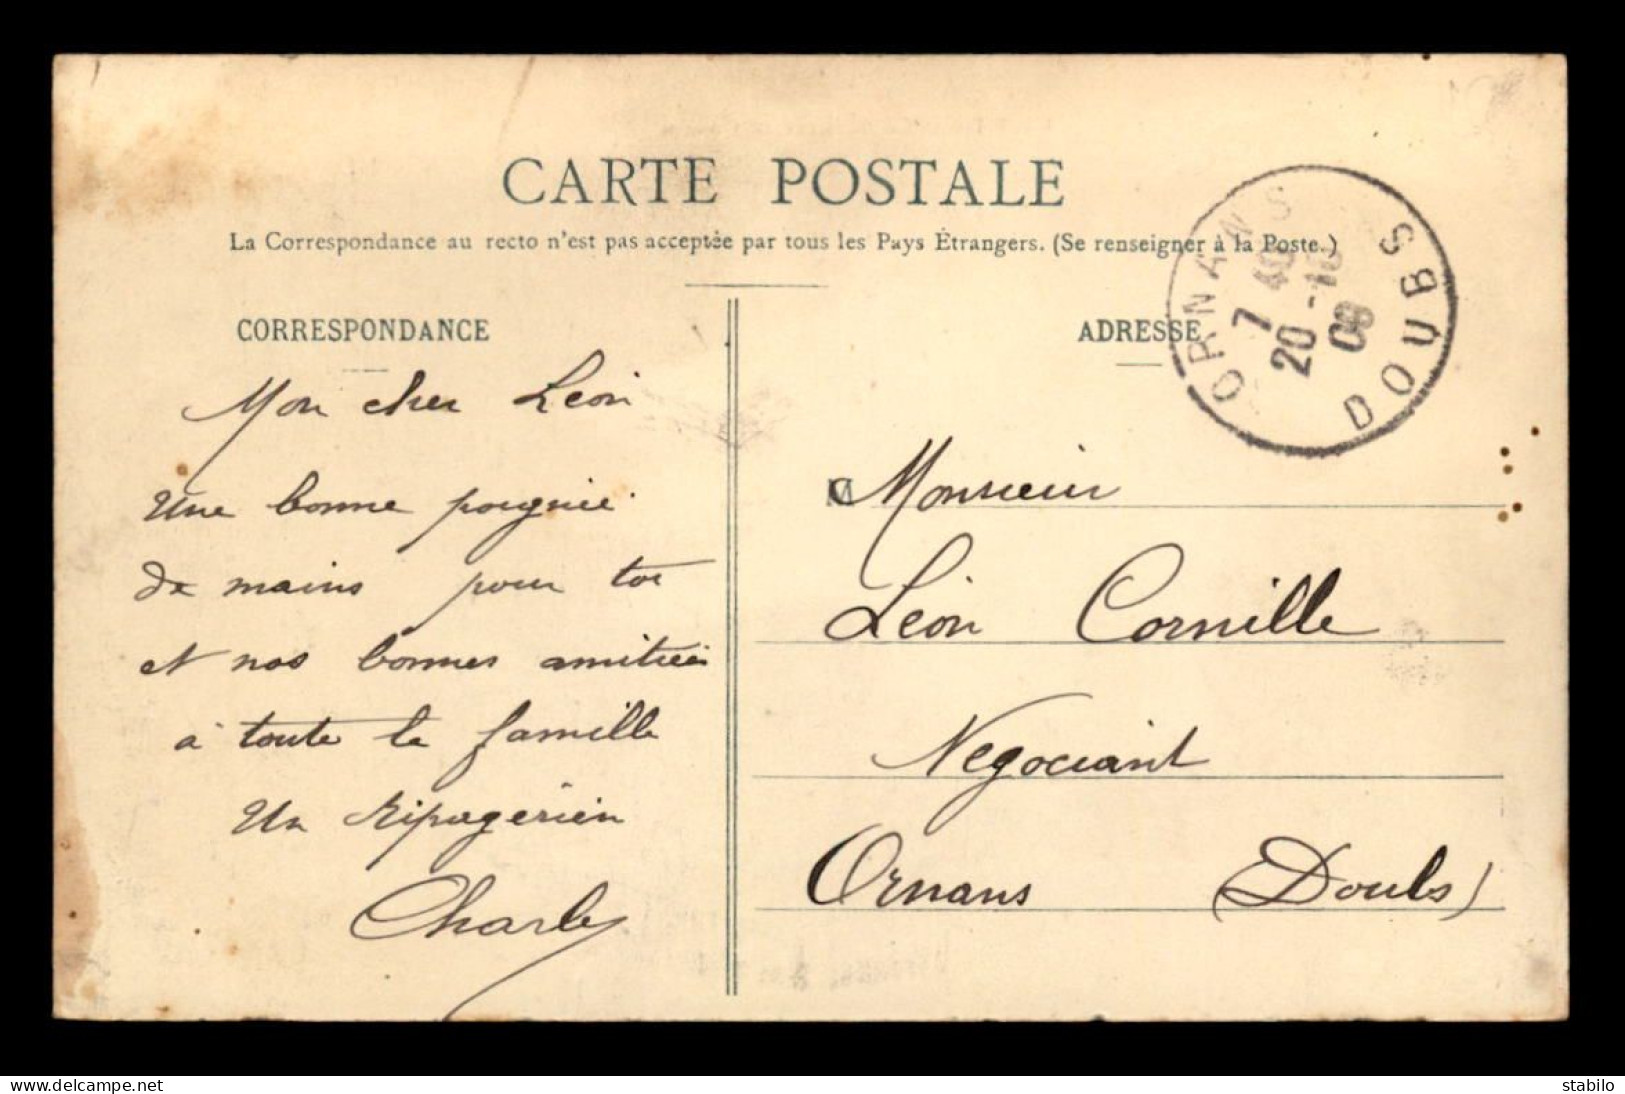 CARTE POSTALE
La Correspondance au recto n'est pas acceptée par tous les Pays Étrangers. (Se renseigner à la Poste.)
CORRESPONDANCE
Mon cher Léon
Une bonne poignée
de mains pour toi
et nos bonnes amitiés
à toute la famille
Un Ripagérien
Charles
ADRESSE
M Monsieur
Léon Cornille
Négociant
Ornans (Doubs)
ORNANS
7 40
20 -10
08
DOUBS
www.delcampe.net
stabilo